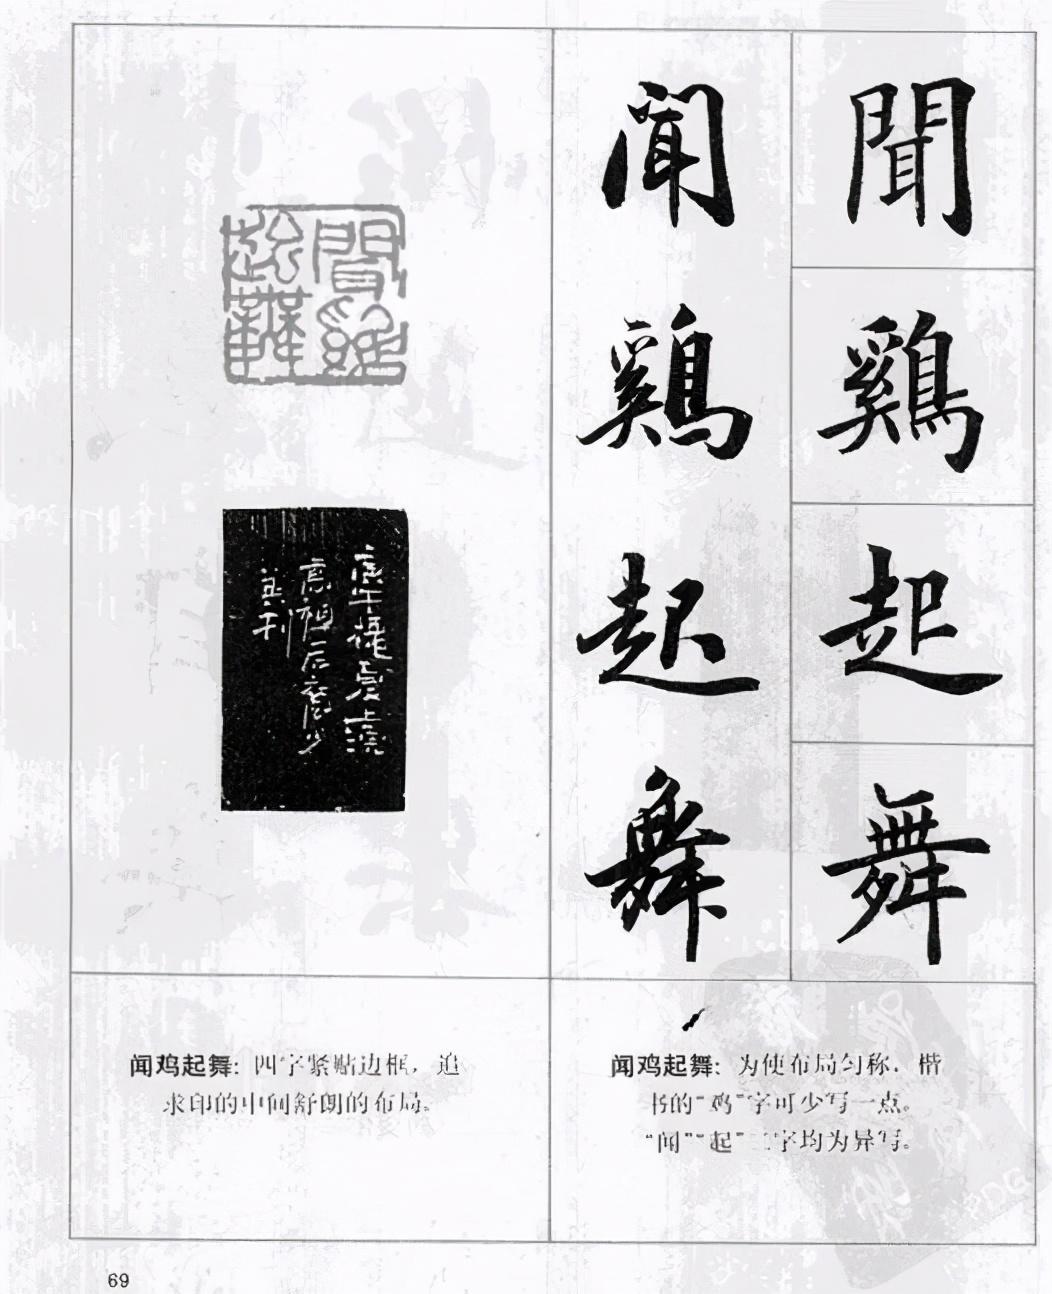 聞
鷄
起
舞
聞
鷄
起
舞
聞鷄
起舞
闻鸡起舞：四字紧贴边框，追
求印的中间舒朗的布局。
闻鸡起舞：为使布局匀称，楷
书的“鸡”字可少写一点。
“闻”“起”二字均为异写。
69